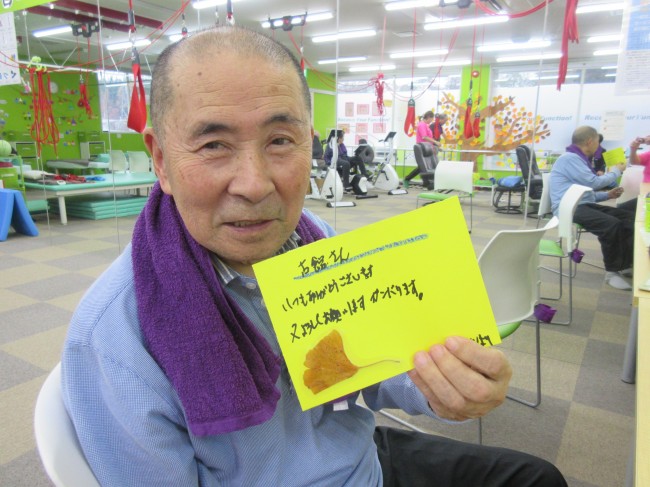 古舘さん
いつもありがとうございます
又よろしくお願いします ガンバリます。
より